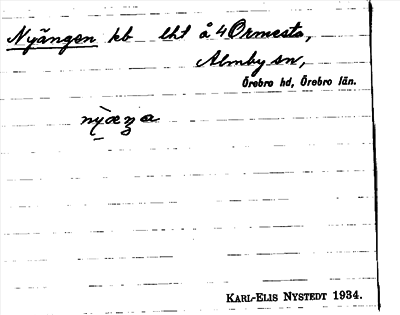 Nyängen kb lht å 4 Ormesta,
Almby sn,
Örebro hd, Örebro län.
KARL-ELIS NYSTEDT 1934.